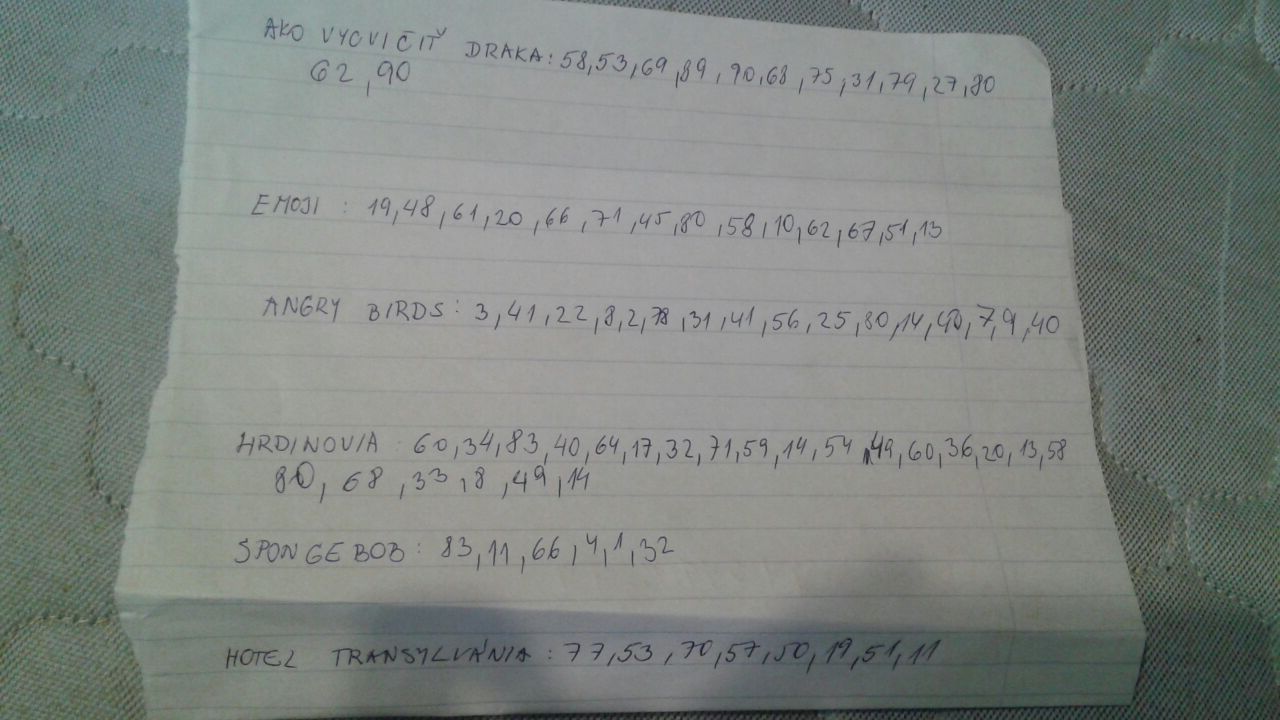 AKO VYCVIČIŤ DRAKA: 58,53,69,89,90,68,75,31,79,27,80
62,90
EMOJI : 19,48,61,20,66,71,45,80,58,10,62,67,51,13
ANGRY BIRDS: 3,41,22,8,2,78,31,41,56,25,80,14,40,7,9,40
HRDINOVIA : 60,34,83,40,64,17,32,71,59,14,54,49,60,36,20,13,58
80, 68,33,8,49,14
SPONGEBOB: 83,11,66,4,1,32
HOTEL TRANSYLVÁNIA : 77,53,70,57,50,19,51,11